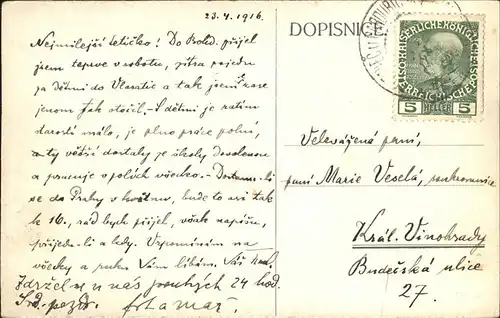 23.4.1916.
DOPISNICE
Nejmilejší tetičko! Do Bohd. přijel
jsem teprve v sobotu, zítra pojedu
pro dětmi do Vlasatic a tak jsem zase
jenom jak stočil. S dětmi je zatím
starostí málo, je plno práce polní,
a ty větší dostaly ze školy dovolenou
a pracuje v polích všecko. Dostanu-li
se do Prahy v květnu, bude to asi tak
ke 16., rád bych přijel, však napíšu,
přijedu-li a kdy. Vzpomínám na
všecky a ruku Vám líbám. Váš
Zdržel se u nás pouhých 24 hod.
Srd. pozdr.
KAISERLICHE KÖNIGLICHE
ÖSTERREICHISCHE POST
5 5
Velevážená paní,
paní Marie Veselá, soukromnice
Král. Vinohrady
Budečská ulice
27.